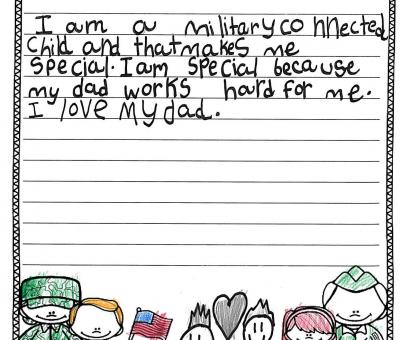 I am a military connected
child and that makes me
special. I am special because
my dad works hard for me.
I love my dad.